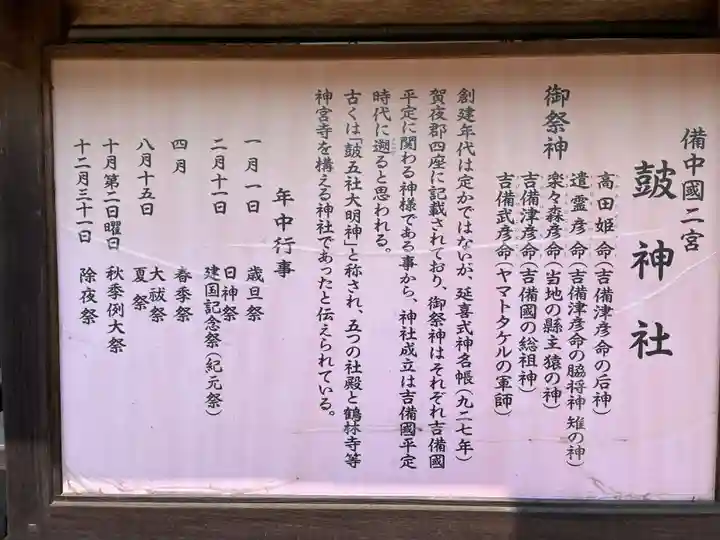 備中國二宮
鼓神社
御祭神
高田姫命(吉備津彦命の后神)
遣霊彦命(吉備津彦命の脇将神 雉の神)
楽々森彦命(当地の縣主猿の神)
吉備津彦命(吉備國の総祖神)
吉備武彦命(ヤマトタケルの軍師)
創建年代は定かではないが、延喜式神名帳(九二七年)
賀夜郡四座に記載されており、御祭神はそれぞれ吉備國
平定に関わる神様である事から、神社成立は吉備國平定
時代に遡ると思われる。
古くは「鼓五社大明神」と称され、五つの社殿と鶴林寺等
神宮寺を構える神社であったと伝えられている。
年中行事
一月一日 歳旦祭
二月十一日 日神祭
建国記念祭(紀元祭)
四月 春季祭
八月十五日 大祓祭
夏祭
十月第二日曜日 秋季例大祭
十二月三十一日 除夜祭